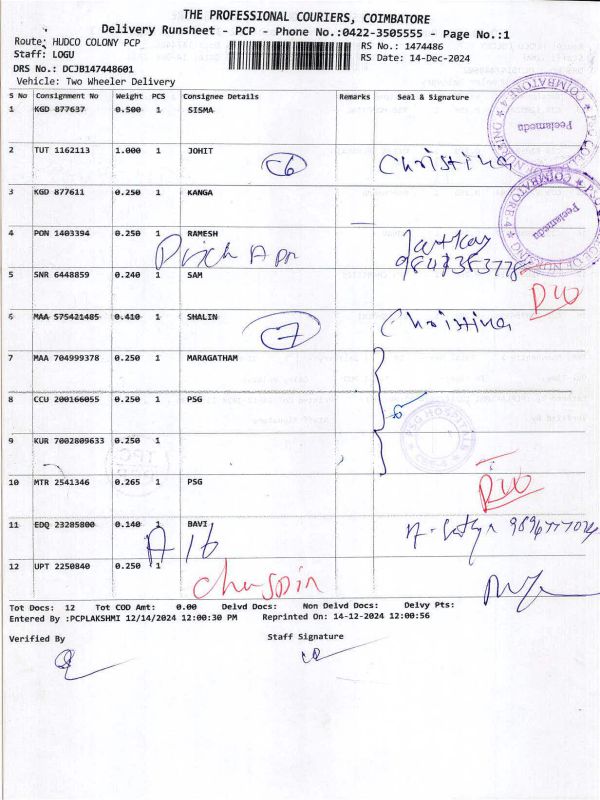 THE PROFESSIONAL COURIERS, COIMBATORE
Delivery Runsheet - PCP - Phone No.:0422-3505555 - Page No.:1
Route: HUDCO COLONY PCP RS No.: 1474486
Staff: LOGU RS Date: 14-Dec-2024
DRS No.: DCJB147448601
Vehicle: Two Wheeler Delivery
S No Consignment No Weight PCS Consignee Details Remarks Seal & Signature
1 KGD 877637 0.500 1 SISMA
2 TUT 1162113 1.000 1 JOHIT
C6 Christina
3 KGD 877611 0.250 1 KANGA
4 PON 1403394 0.250 1 RAMESH
5 SNR 6448859 0.240 1 SAM
6 MAA 575421485 0.410 1 SHALIN
7 Christina
7 MAA 704999378 0.250 1 MARAGATHAM
8 CCU 200166055 0.250 1 PSG
9 KUR 7002809633 0.250 1
PSG HOSPITALS
10 MTR 2541346 0.265 1 PSG
11 EDQ 23205800 0.140 1 BAVI
A 16
12 UPT 2250840 0.250 1
Tot Docs: 12 Tot COD Amt: 0.00 Delvd Docs: Non Delvd Docs: Delvy Pts:
Entered By :PCPLAKSHMI 12/14/2024 12:00:30 PM Reprinted On: 14-12-2024 12:00:56
Verified By Staff Signature
Peelamedu
COIMBATORE 4
Peelamedu
COIMBATORE 4